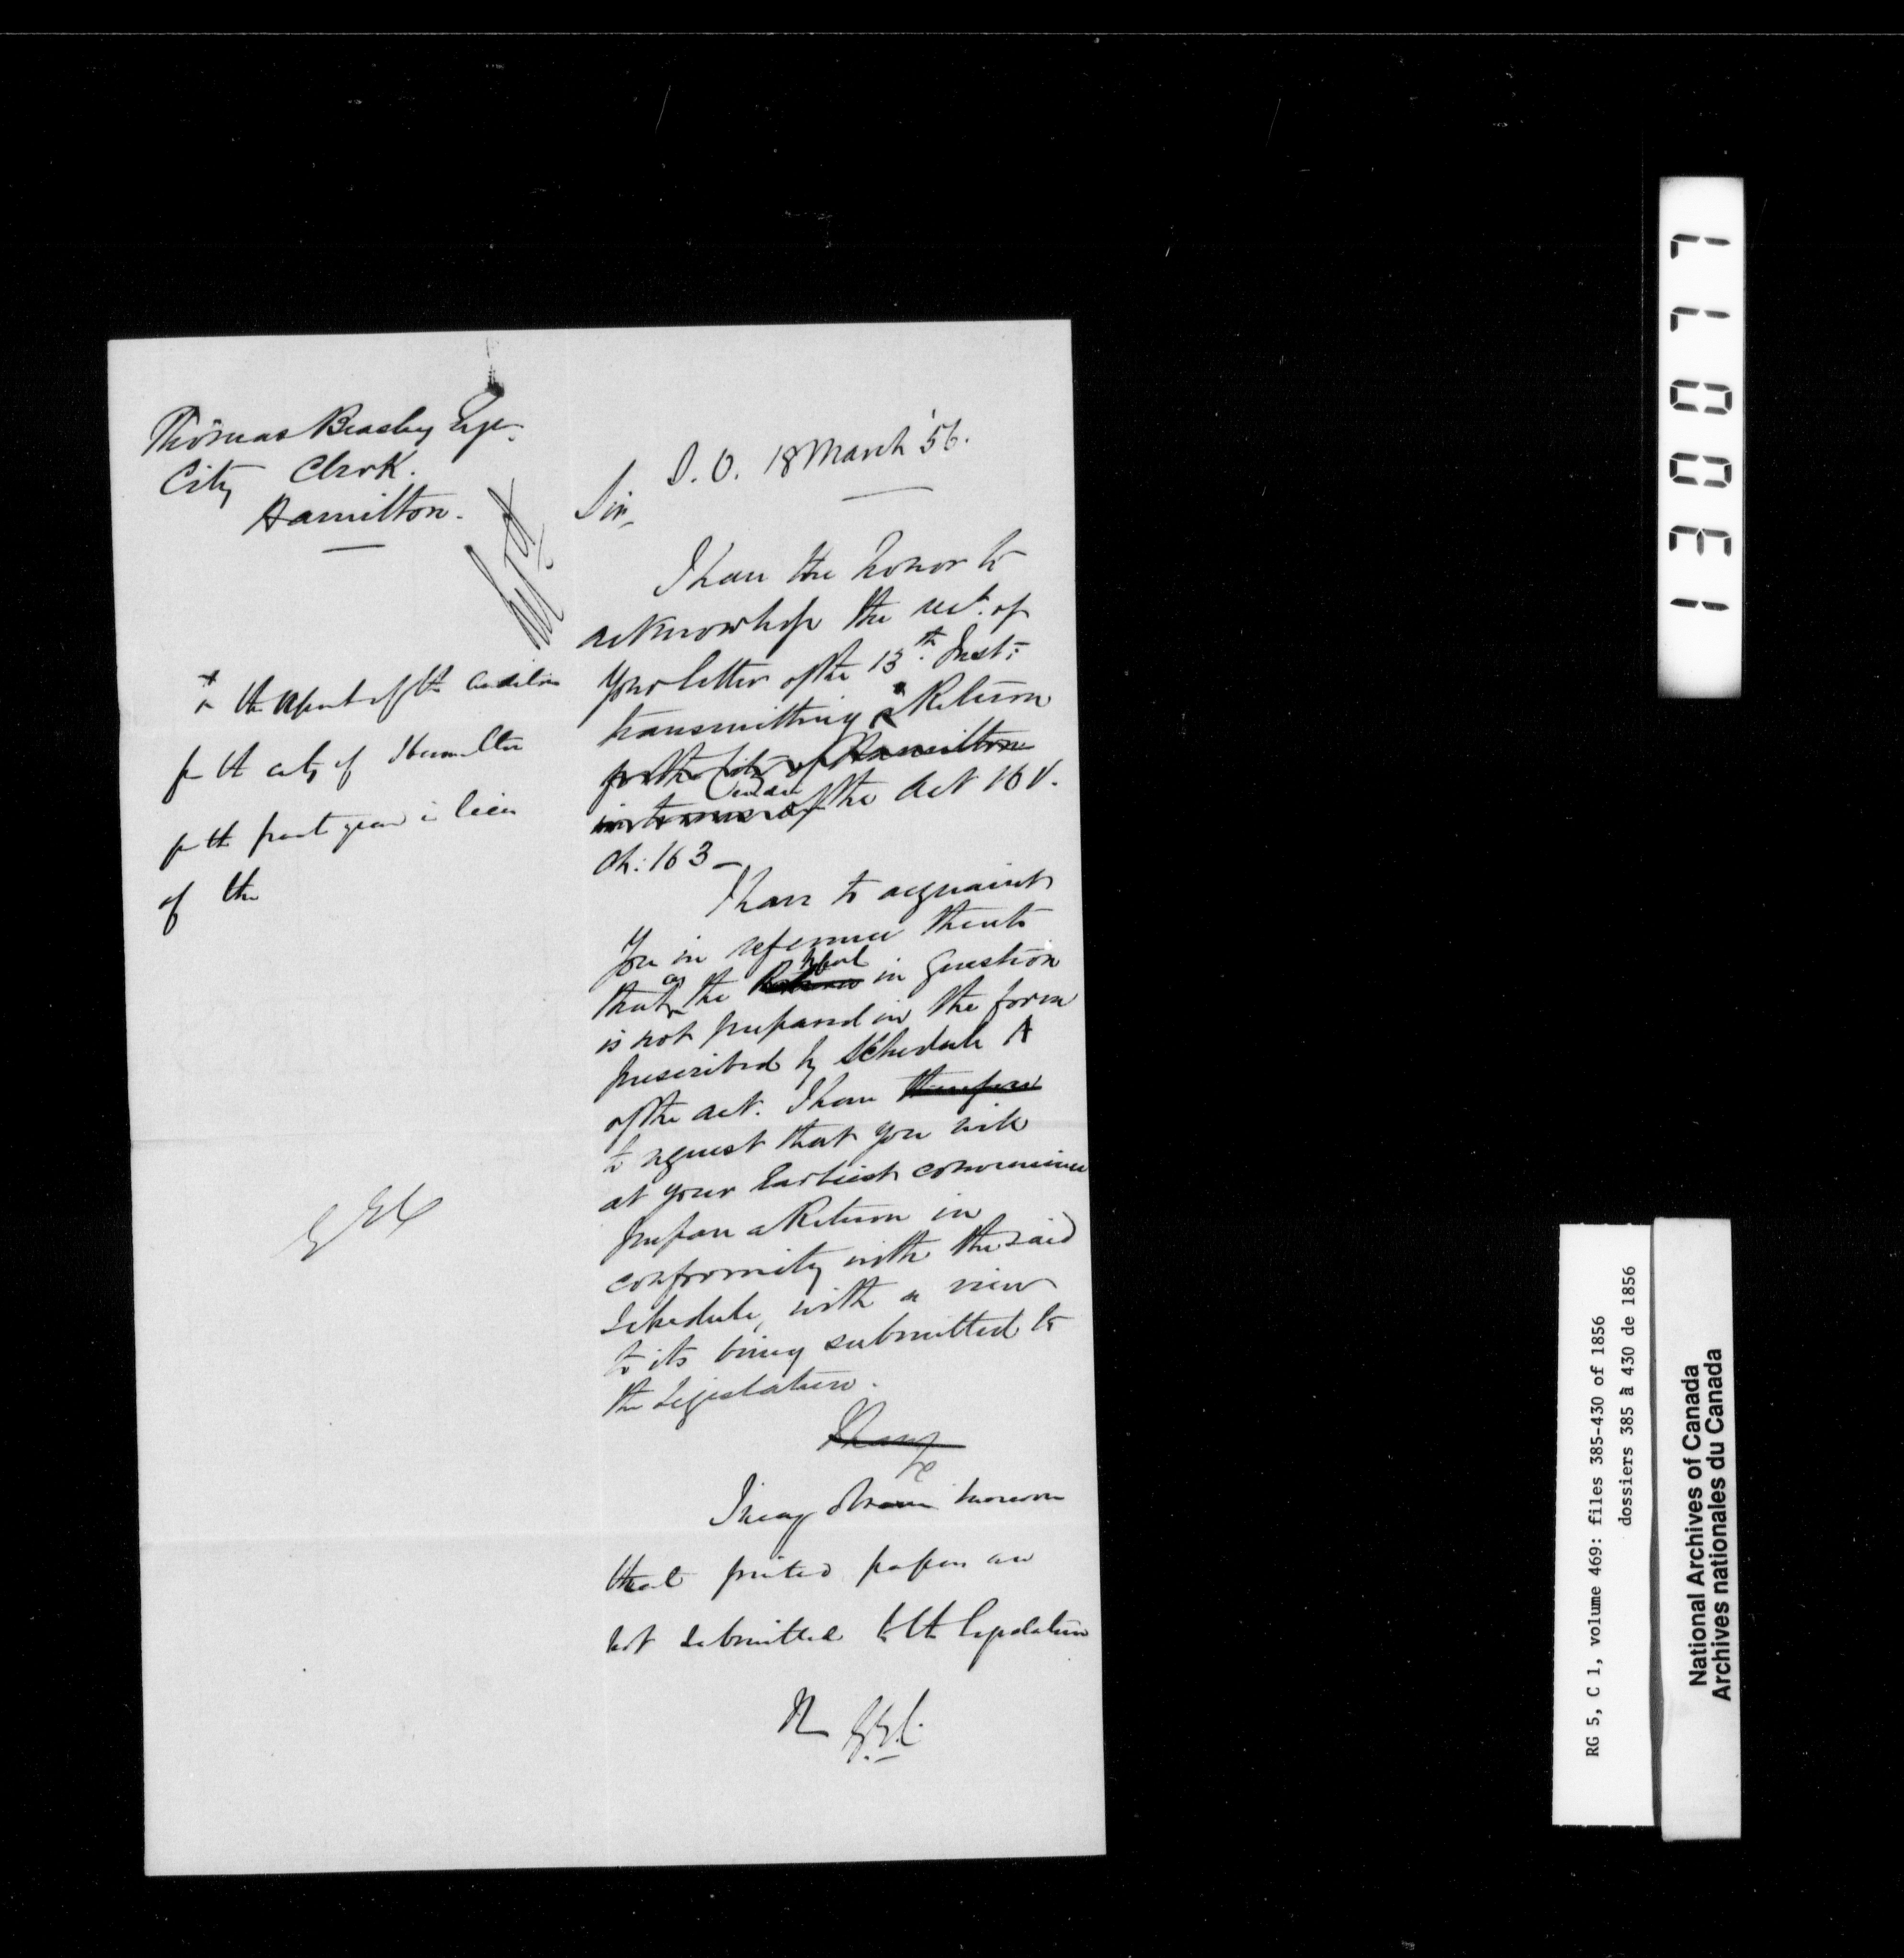 Thomas Beasley Esqr.
City Clerk.
Hamilton.
S. O. 18 March '56.
Sir,
I have the honor to
acknowledge the rect. of
your letter of the 13th. Inst:
transmitting a Return
for the City of Hamilton
in terms of under the Act 16 V.
ch: 163 –
I have to acquaint
you in reference thereto
that as the Return in question
is not prepared in the form
prescribed by Schedule A
of the Act. I have therefore
to request that you will
at your Earliest convenience
prepare a Return in
conformity with the said
Schedule, with a view
to its being submitted to
the Legislature.
I have
&c
I may observe however
that printed papers are
not submitted to the Legislature
I have
the report of the Auditors
for the city of Hamilton
for the past year in lieu
of the
130077
RG 5, C 1, volume 469: files 385-430 of 1856
dossiers 385 à 430 de 1856
National Archives of Canada
Archives nationales du Canada